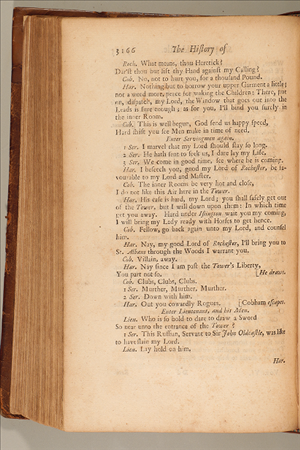 3266 The History of
Roch. What mean, thou Heretick?
Dar'st thou but lift thy Hand against my Calling?
Cob. No, not to hurt you, for a thousand Pound.
Har. Nothing but to borrow your upper Garment a little;
not a word more, peace for waking the Children: There, put
on, dispatch, my Lord, the Window that goes out into the
Leads is sure enough; as for you, I'll bind you surely in
the inner Room.
Cob. This is well begun, God send us happy speed,
Hard shift you see Men make in time of need.
Enter Servingmen again.
1 Ser. I marvel that my Lord should stay so long.
2 Ser. He hath sent to seek us, I dare lay my Life.
1 Ser. We come in good time, see where he is coming.
Har. I beseech you, good my Lord of Rochester, be fa-
vourable to my Lord and Master.
Cob. The inner Rooms be very hot and close,
I do not like this Air here in the Tower.
Har. His case is hard, my Lord; you shall safely get out
of the Tower, but I will down upon them: In which time
get you away. Hard under Islington wait you my coming,
I will bring my Lady ready with Horses to get hence.
Cob. Fellow, go back again unto thy Lord, and counsel
him.
Har. Nay, my good Lord of Rochester, I'll bring you to
St. Albans through the Woods I warrant you.
Cob. Villain, away.
Har. Nay since I am past the Tower's Liberty,
You part not so. [He draws.
Cob. Clubs, Clubs, Clubs.
1 Ser. Murther, Murther, Murther.
2 Ser. Down with him.
Har. Out you cowardly Rogues. [Cobham escapes.
Enter Lieutenant, and his Men.
Lieu. Who is so bold to dare to draw a Sword
So near unto the entrance of the Tower?
1 Ser. This Ruffian, Servant to Sir John Oldcastle, was like
to have slain my Lord.
Lieu. Lay hold on him.
Har.